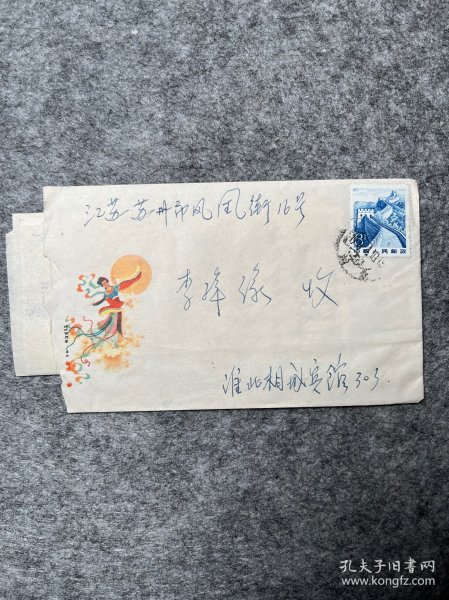 江苏苏州市凤凰街16号
8分
中国人民邮政
李 收
淮北相城宾馆303.
孔夫子旧书网
www.kongfz.com